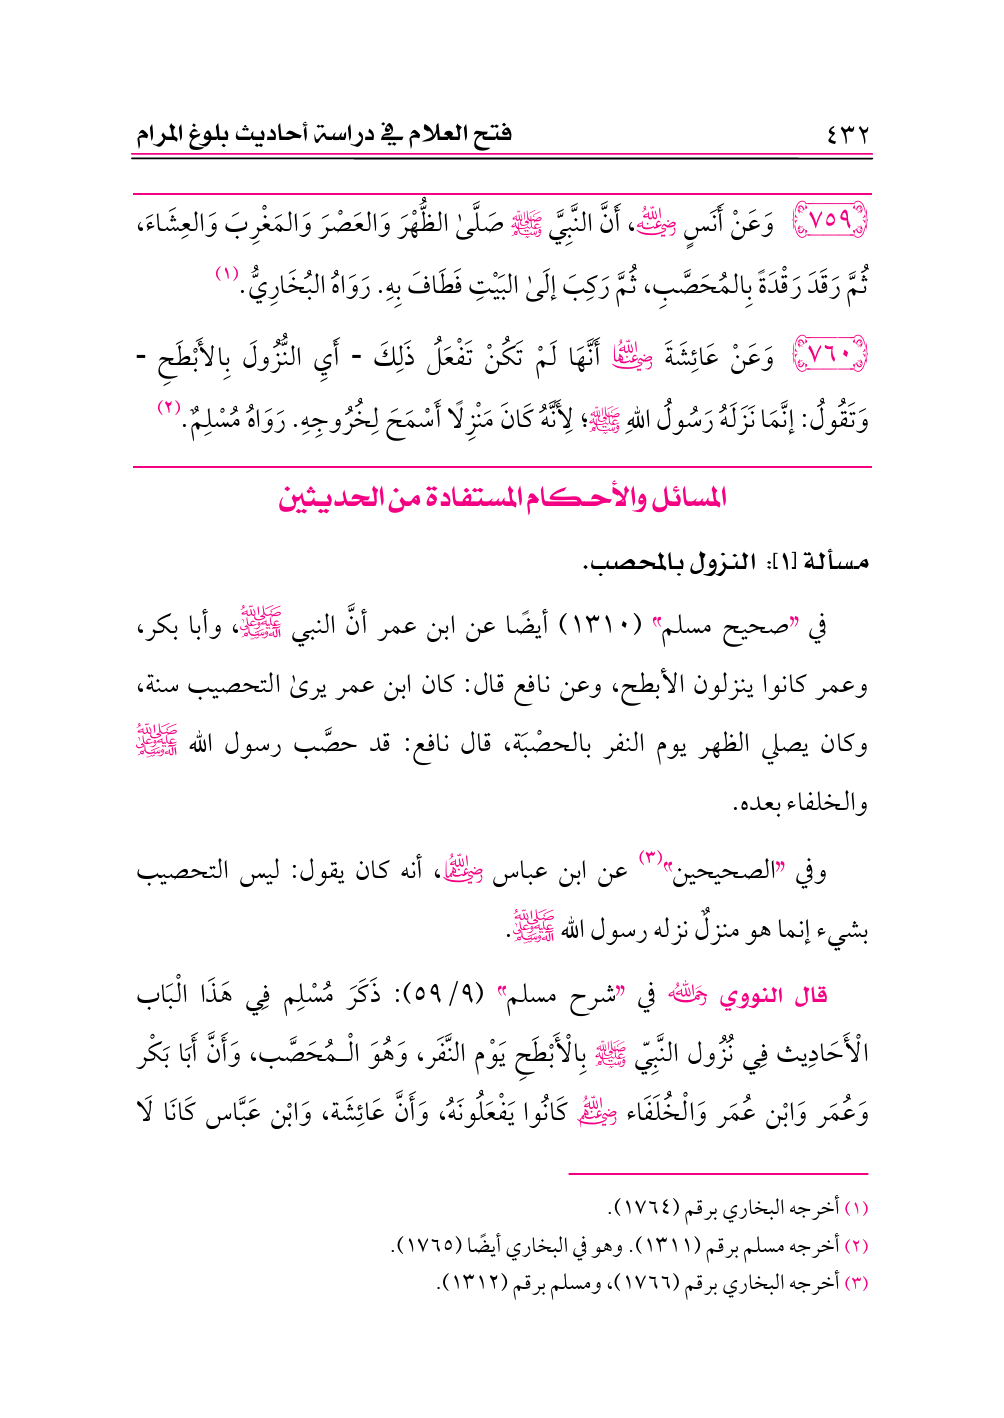 ٤٣٢ فتح العلام في دراسة أحاديث بلوغ المرام
﴿٧٥٩﴾ وَعَنْ أَنَسٍ رضي الله عنه، أَنَّ النَّبِيَّ ﷺ صَلَّىٰ الظُّهْرَ وَالعَصْرَ وَالمَغْرِبَ وَالعِشَاءَ،
ثُمَّ رَقَدَ رَقْدَةً بِالمُحَصَّبِ، ثُمَّ رَكِبَ إلَىٰ البَيْتِ فَطَافَ بِهِ. رَوَاهُ البُخَارِيُّ.(١)
﴿٧٦٠﴾ وَعَنْ عَائِشَةَ رضي الله عنها أَنَّهَا لَمْ تَكُنْ تَفْعَلُ ذَلِكَ - أَيِ النُّزُولَ بِالأَبْطَحِ -
وَتَقُولُ: إنَّمَا نَزَلَهُ رَسُولُ اللهِ ﷺ؛ لِأَنَّهُ كَانَ مَنْزِلًا أَسْمَحَ لِخُرُوجِهِ. رَوَاهُ مُسْلِمٌ.(٢)
المسائل والأحكام المستفادة من الحديثين
مسألة [١]: النزول بالمحصب.
في "صحيح مسلم" (١٣١٠) أيضًا عن ابن عمر أنَّ النبي ﷺ، وأبا بكر،
وعمر كانوا ينزلون الأبطح، وعن نافع قال: كان ابن عمر يرىٰ التحصيب سنة،
وكان يصلي الظهر يوم النفر بالحصْبَة، قال نافع: قد حصَّب رسول الله ﷺ
والخلفاء بعده.
وفي "الصحيحين"(٣) عن ابن عباس رضي الله عنهما، أنه كان يقول: ليس التحصيب
بشيء إنما هو منزلٌ نزله رسول الله ﷺ.
قال النووي رحمه الله في "شرح مسلم" (٩/ ٥٩): ذَكَرَ مُسْلِم فِي هَذَا الْبَاب
الْأَحَادِيث فِي نُزُول النَّبِيّ ﷺ بِالْأَبْطَحِ يَوْم النَّفَر، وَهُوَ الْـمُحَصَّب، وَأَنَّ أَبَا بَكْر
وَعُمَر وَابْن عُمَر وَالْخُلَفَاء رضي الله عنهم كَانُوا يَفْعَلُونَهُ، وَأَنَّ عَائِشَة، وَابْن عَبَّاس كَانَا لَا
(١) أخرجه البخاري برقم (١٧٦٤).
(٢) أخرجه مسلم برقم (١٣١١). وهو في البخاري أيضًا (١٧٦٥).
(٣) أخرجه البخاري برقم (١٧٦٦)، ومسلم برقم (١٣١٢).